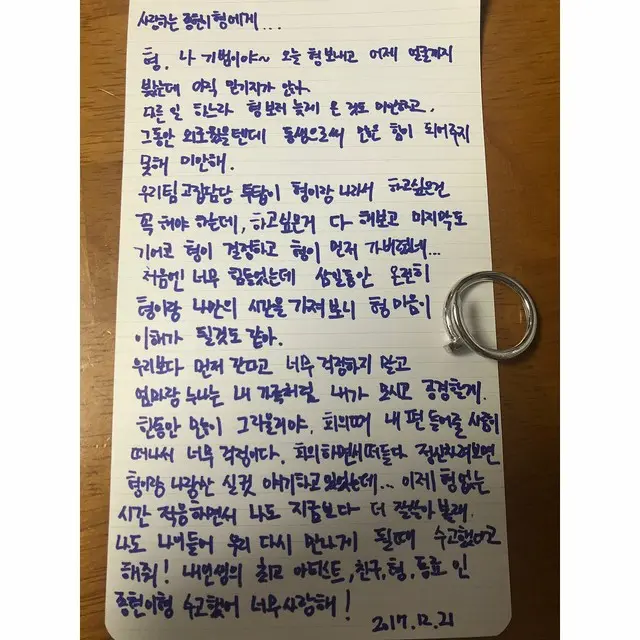 사랑하는 종현이형에게...
형, 나 기범이야~ 오늘 형보내고 어제 얼굴까지
봤는데 아직 믿기지가 않아
다른 일 하느라 형보러 늦게 온 것도 미안하고,
그동안 외로웠을텐데 동생으로써 많은 힘이 되어주지
못해 미안해.
우리팀 고집담당 투탑이 형이랑 나라서 하고싶은건
꼭 해야 하는데, 하고싶은거 다 해보고 마지막도
기어코 형이 결정하고 형이 먼저 가버렸네...
처음엔 너무 힘들었는데 삼일동안 온전히
형이랑 나만의 시간을 가져보니 형 마음이
이해가 될것도 같아.
우리보다 먼저 간다고 너무 걱정하지 말고
엄마랑 누나는 내 가족처럼 내가 모시고 공경할게.
한동안 많이 그리울거야, 회의때 내 편 들어줄 사람이
떠나서 너무 걱정이다. 회의하면서 떠들다 정신차려보면
형이랑 나랑만 실컷 얘기하고 있었는데... 이제 형 없는
시간 적응하면서 나도 지금보다 더 잘살아 볼래.
나도 나이들어 우리 다시 만나게 될때 수고했다고
해줘! 내인생의 최고 아티스트, 친구, 형, 동료 인
종현이형 수고했어 너무 사랑해!
2017.12.21